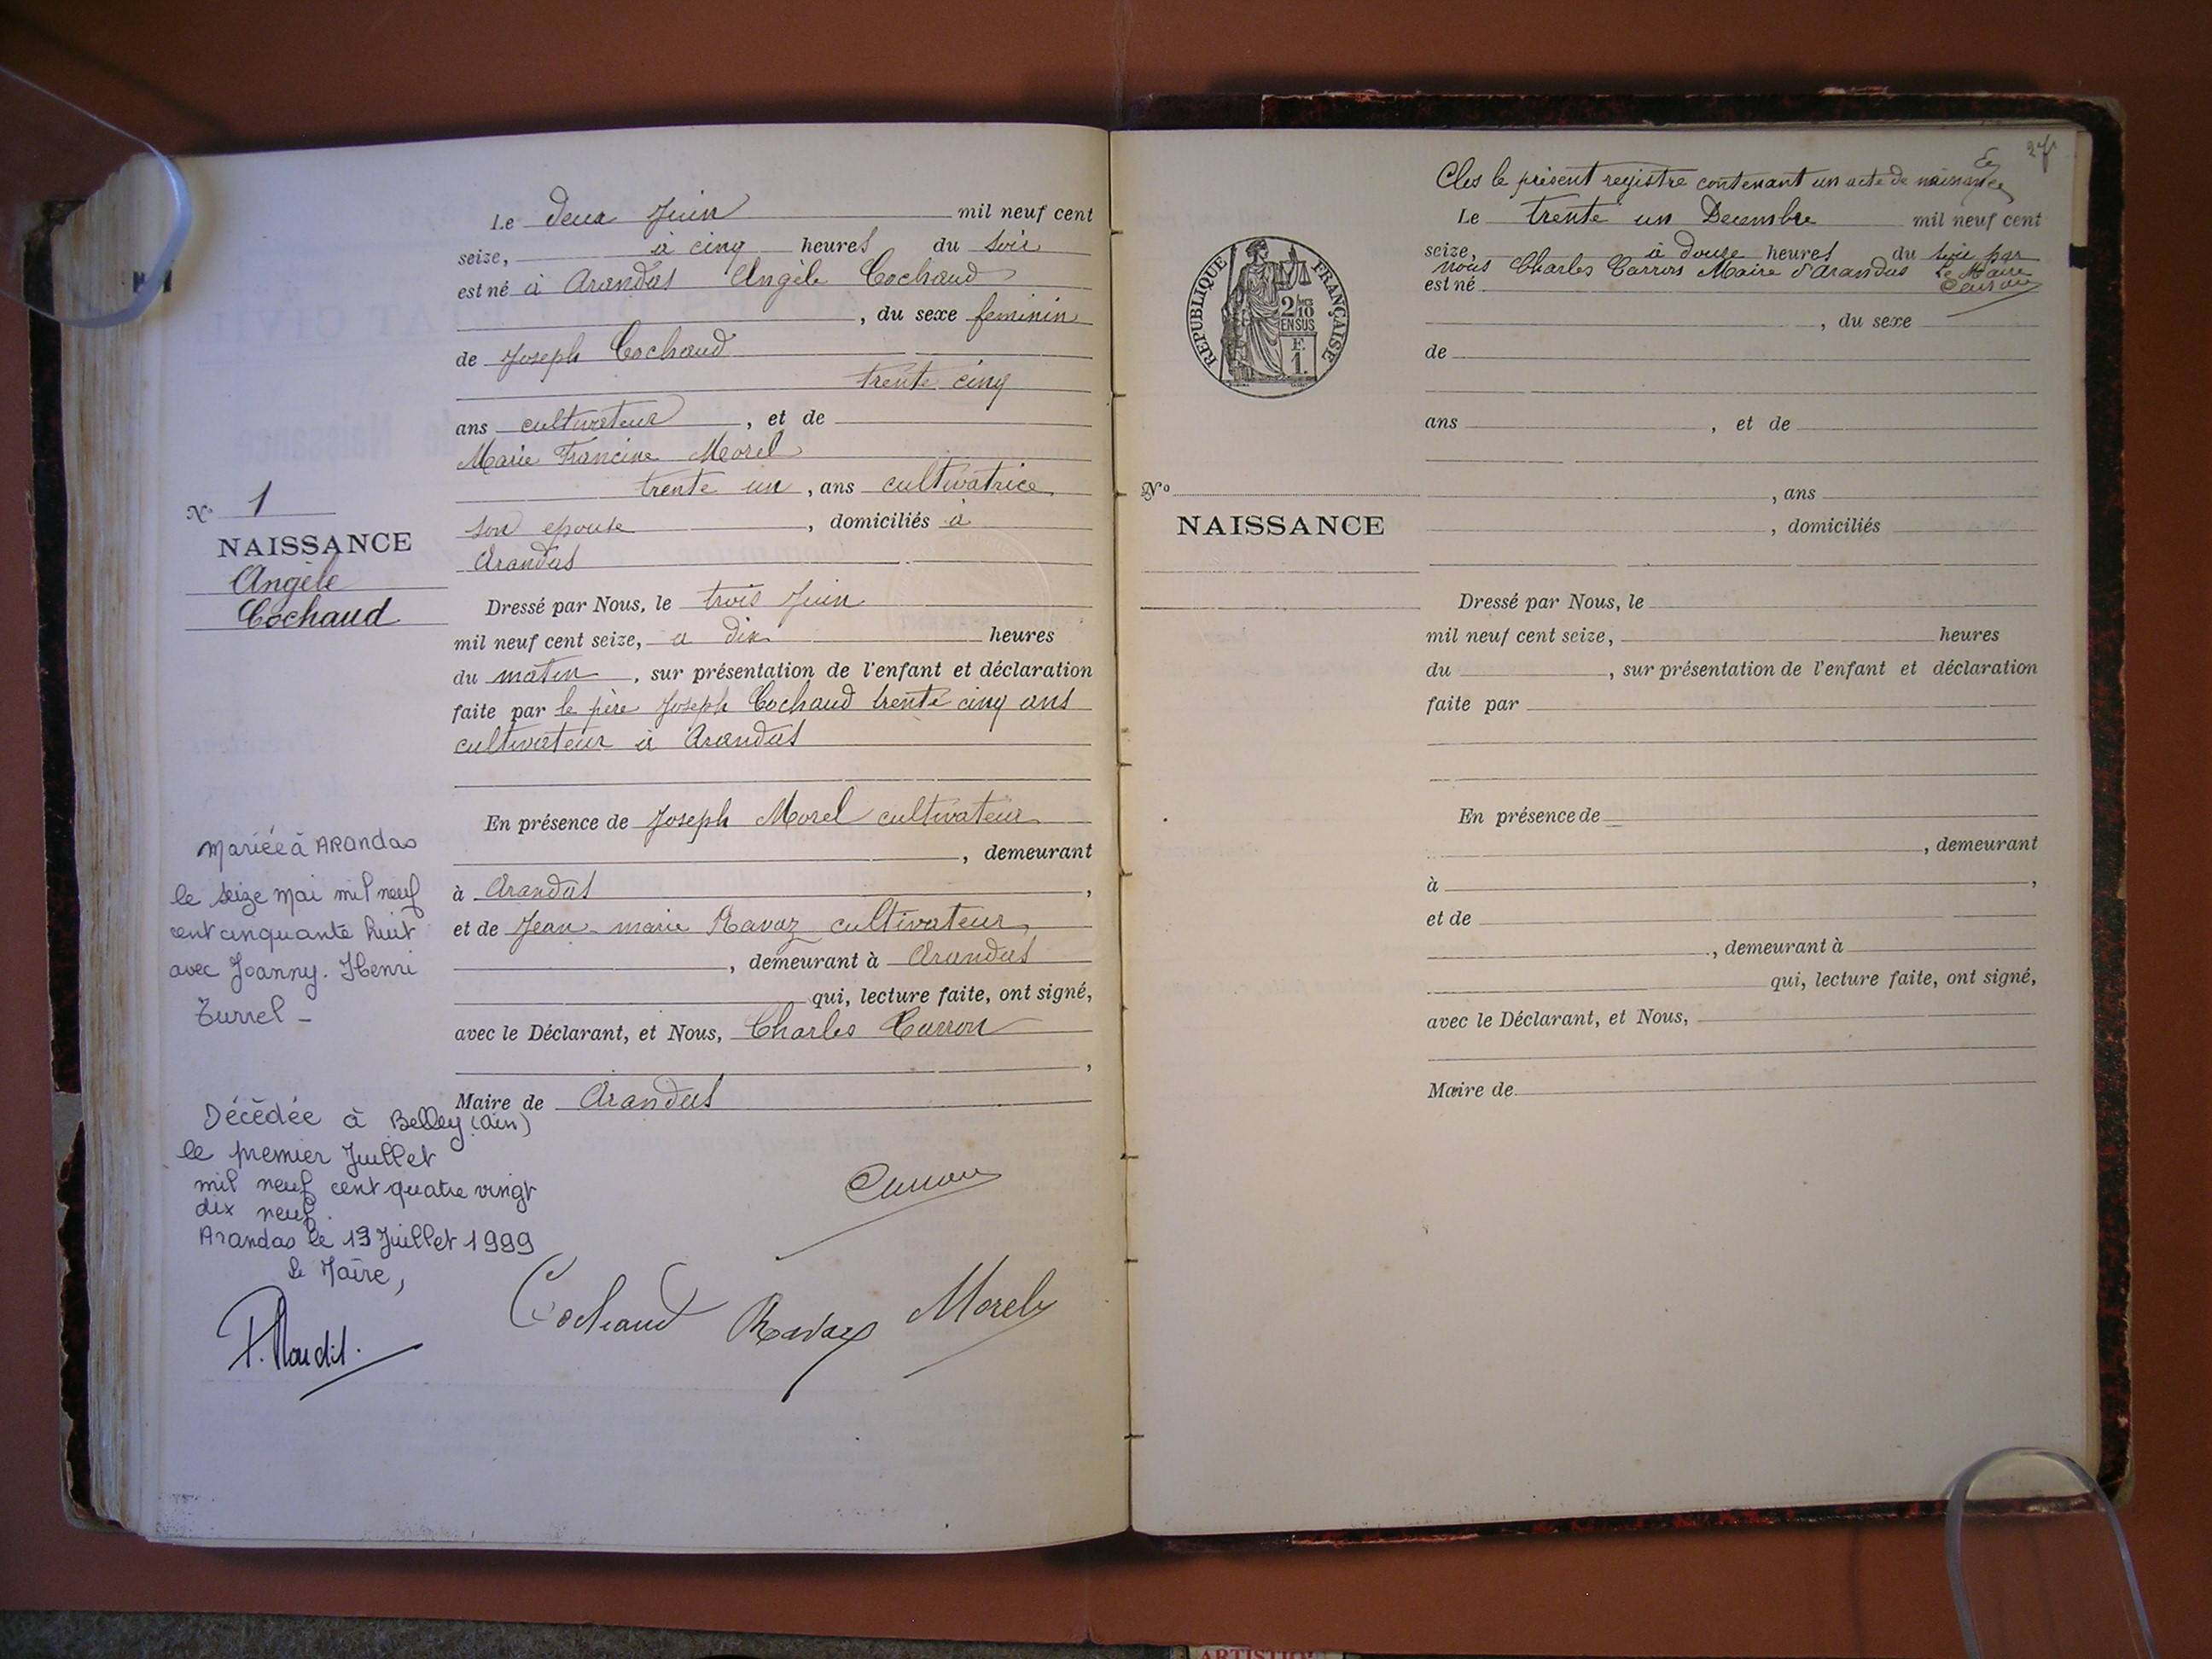 Le deux Juin mil neuf cent
seize, à cinq heures du soir
est né à Arandas Angèle Cochaud
, du sexe feminin
de Joseph Cochaud
trente cinq
ans cultivateur , et de
Marie Francine Morel
trente un , ans cultivatrice
son epouse , domiciliés à
Arandas
Dressé par Nous, le trois Juin
mil neuf cent seize, a dix heures
du matin , sur présentation de l'enfant et déclaration
faite par le père Joseph Cochaud trente cinq ans
cultivateur à Arandas
En présence de Joseph Morel cultivateur
, demeurant
à Arandas ,
et de Jean marie Ravaz cultivateur
, demeurant à Arandas
qui, lecture faite, ont signé,
avec le Déclarant, et Nous, Charles Carron
,
Maire de Arandas
Carron
Cochaud Ravaz Morel
No 1
NAISSANCE
Angèle
Cochaud
Mariée à ARandas
le seize mai mil neuf
cent cinquante huit
avec Joanny. Henri
Turrel -
Décédée à Belley (Ain)
le premier Juillet
mil neuf cent quatre vingt
dix neuf.
Arandas le 13 Juillet 1999
Le Maire,
Clos le présent registre contenant un acte de naissance
Le trente un Decembre mil neuf cent
seize, à douze heures du soir par
nous Charles Carron Maire d'Arandas Le Maire
est né Carron
, du sexe
de
ans , et de
, ans
, domiciliés
Dressé par Nous, le
mil neuf cent seize, heures
du , sur présentation de l'enfant et déclaration
faite par
En présence de
, demeurant
à ,
et de
, demeurant à
qui, lecture faite, ont signé,
avec le Déclarant, et Nous,
Maire de
RÉPUBLIQUE FRANÇAISE
2/10
EN SUS
F.
1.
No
NAISSANCE